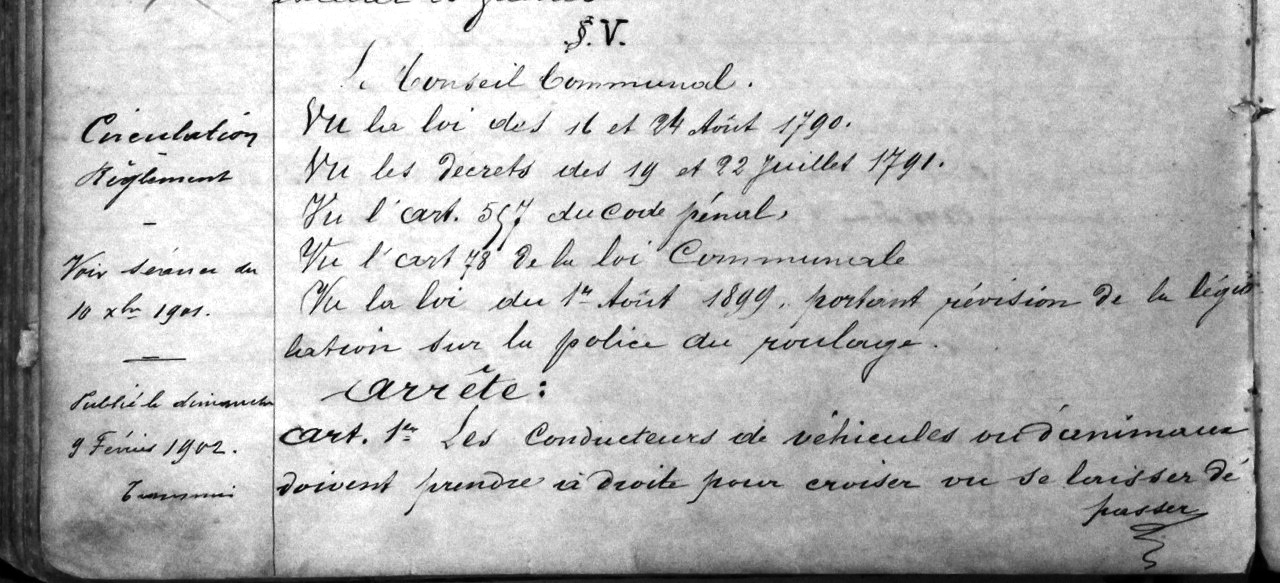 §. V.
Le Conseil Communal.
Vu la loi des 16 et 24 Août 1790.
Vu les décrets des 19 et 22 Juillet 1791.
Vu l'art. 557 du Code pénal,
Vu l'art 78 de la loi Communale
Vu la loi du 1er Août 1899, portant révision de la légis
lation sur la police du roulage.
arrête:
art. 1er Les Conducteurs de véhicules ou d'animaux
doivent prendre à droite pour croiser ou se laisser dé
passer
Circulation
Règlement
Voir séance du
10 xbre 1901.
Publié le dimanche
9 Février 1902.